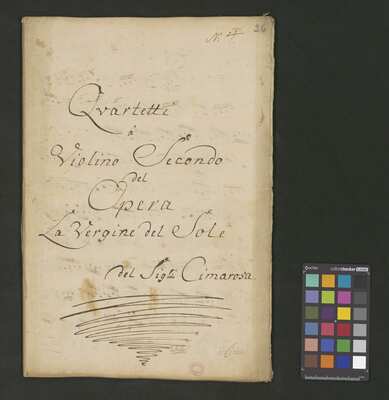 26
Quartetti
à
Violino Secondo
del
Opera
La Vergine del Sole
del Sigre Cimarosa